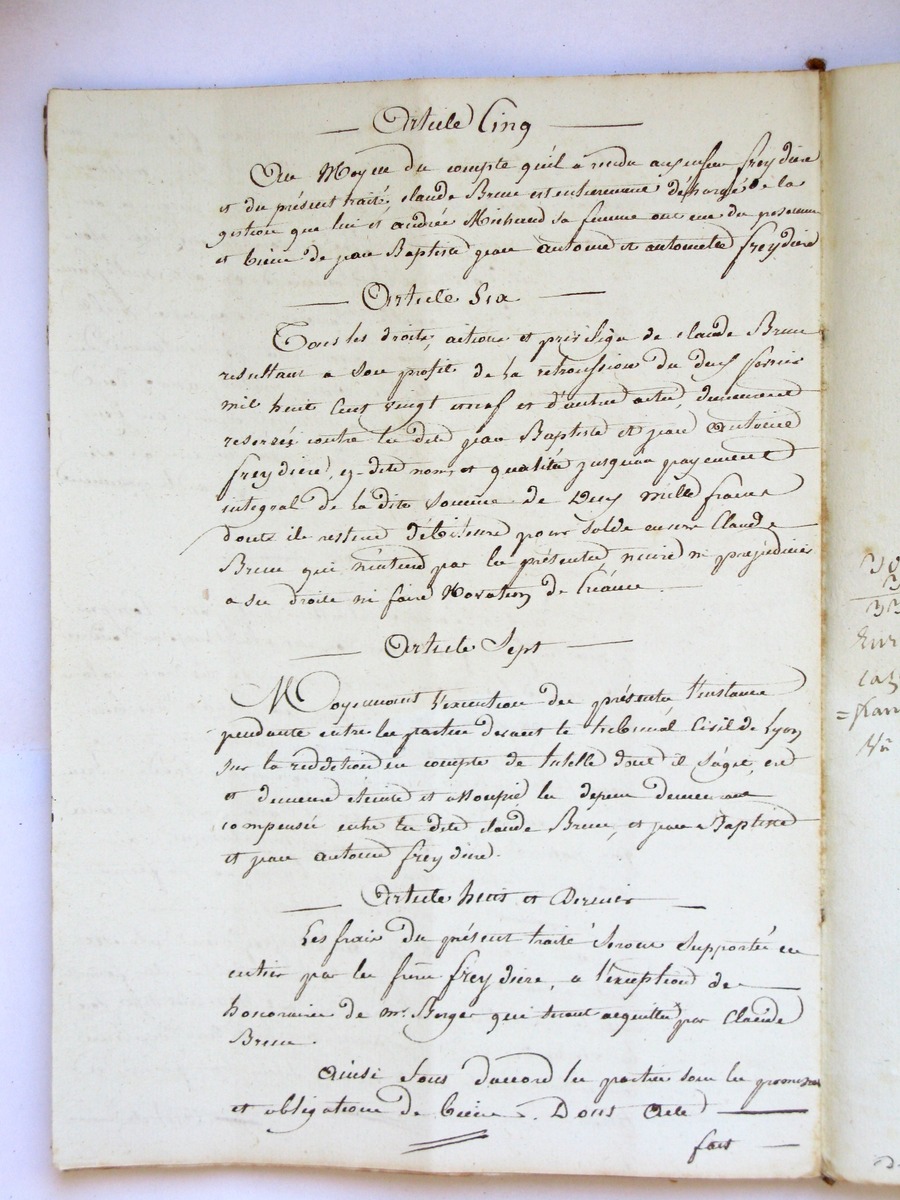 Article Cinq
Au Moyen du compte qu'il a rendu aux freydiere
et du présent traité, claude Brun est entierement déchargé de la
gestion que lui et andrée Michaud sa femme ont eue des personnes
et biens de jean Baptiste jean antoine et antoinette freydiere
Article Six
Tous les droits, actions et privilége de claude Brun
resultant a son profit de la du deux fevrier
mil huit cent vingt neuf et d'autres actes, demeurent
reservés contre les dits jean Baptiste et jean antoine
freydiere, es-dits noms et qualités jusqu'au payement
integral de la dite somme de deux mille francs
dont ils restent débiteurs pour solde envers Claude
Brun qui n'entend par les présentes, nuire ni prejudicier
a ses droits ni faire Novation de créance
Article Sept
Moyennant l'execution des présentes l'instance
pendante entre les parties devant le tribunal Civil de Lyon
sur la reddition en compte de tutelle dont il s'agit, est
et demeure éteinte et assoupie, les depens demeurant
compensés entre les dits claude Brun, et jean Baptiste
et jean antoine freydiere.
Article huit et Dernier
Les frais du présent traité seront supportés en
entier par les freres freydiere, a l'exception des
honoraires de mr. Berger qui seront acquittés par Claude
Brun.
Ainsi sous d'accord les parties sous les promesses
et obligations de biens. Dont Acte
fait
33